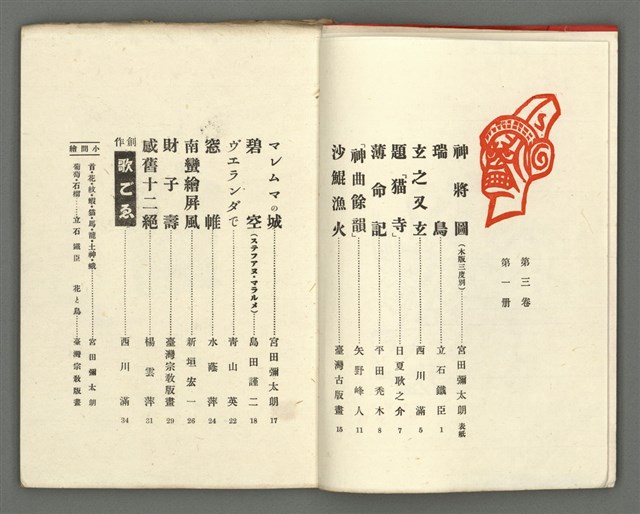 第三卷
第一册
神將圖(木版三度刷)宮田彌太朗 表紙
瑞鳥 立石鐵臣 1
玄之又玄 西川滿 5
題「猫寺」 日夏耿之介 7
薄命記 平田禿木 8
「神曲餘韻」 矢野峰人 11
沙鯤漁火 臺灣古版畫 15
マレムマの城 宮田彌太朗 17
碧空(ステフアヌ・マラルメ) 島田謹二 18
ヴエランダで 靑山英 22
窓帷 水蔭萍 24
南蠻繪屏風 新垣宏一 26
財子壽 臺灣宗敎版畫 29
感舊十二絕 楊雲萍 31
創作 歌ごゑ 西川滿 34
小間繪
首・花・紋・蝦・猫・馬・龍・土神・蛾 宮田彌太朗
葡萄・石榴……立石鐵臣 花と鳥……臺灣宗敎版畫